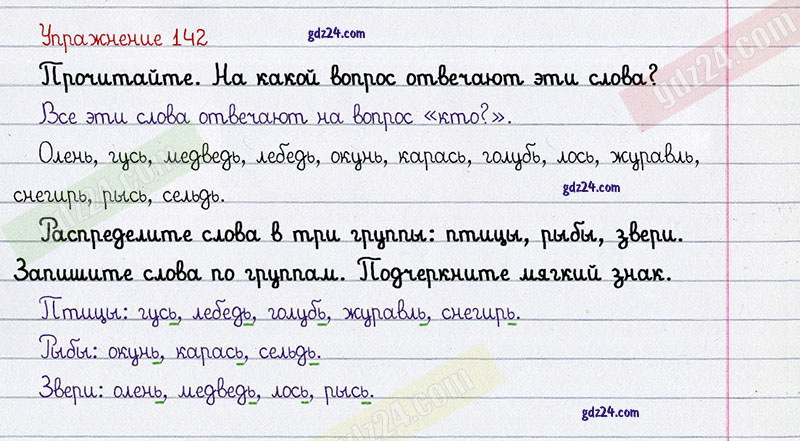 Упражнение 142
gdz24.com
gdz24.com
Прочитайте. На какой вопрос отвечают эти слова?
Все эти слова отвечают на вопрос «кто?».
Олень, гусь, медведь, лебедь, окунь, карась, голубь, лось, журавль,
снегирь, рысь, сельдь.
gdz24.com
gdz24.com
Распределите слова в три группы: птицы, рыбы, звери.
Запишите слова по группам. Подчеркните мягкий знак.
Птицы: гусь, лебедь, голубь, журавль, снегирь.
Рыбы: окунь, карась, сельдь.
Звери: олень, медведь, лось, рысь.
gdz24.com
gdz24.com